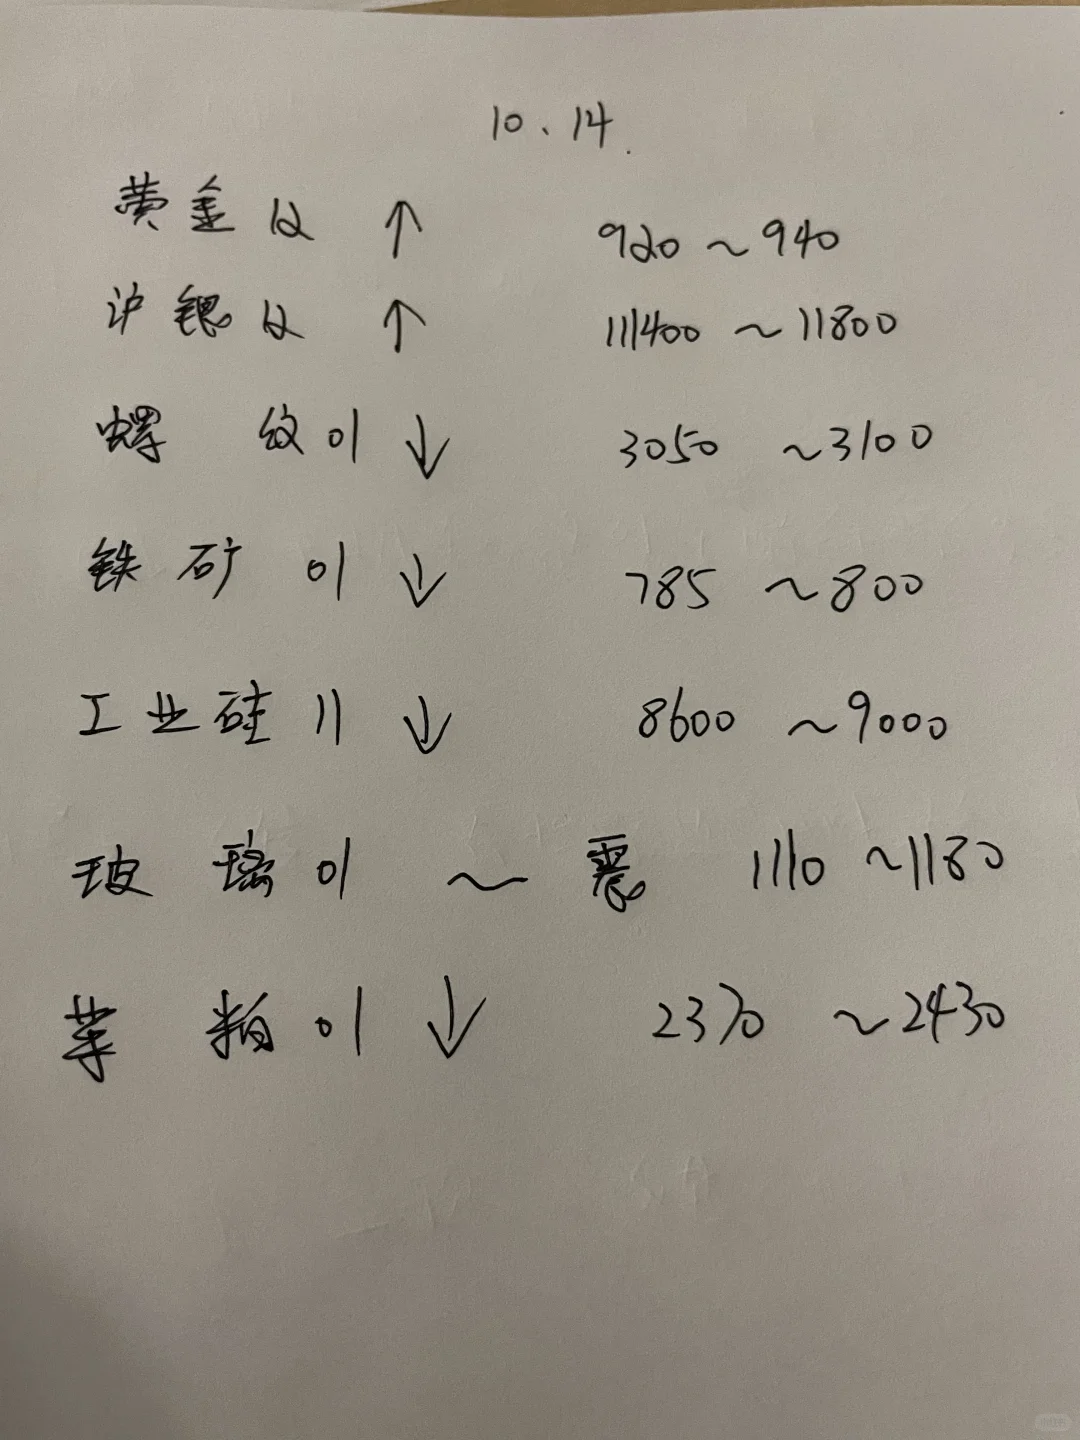 10、14.
黄金12 ↑ 920～940
沪银12 ↑ 111400～11800
螺纹01 ↓ 3050～3100
铁矿01 ↓ 785～800
工业硅11 ↓ 8600～9000
玻璃01 ～震 1110～1180
菜粕01 ↓ 2370～2430